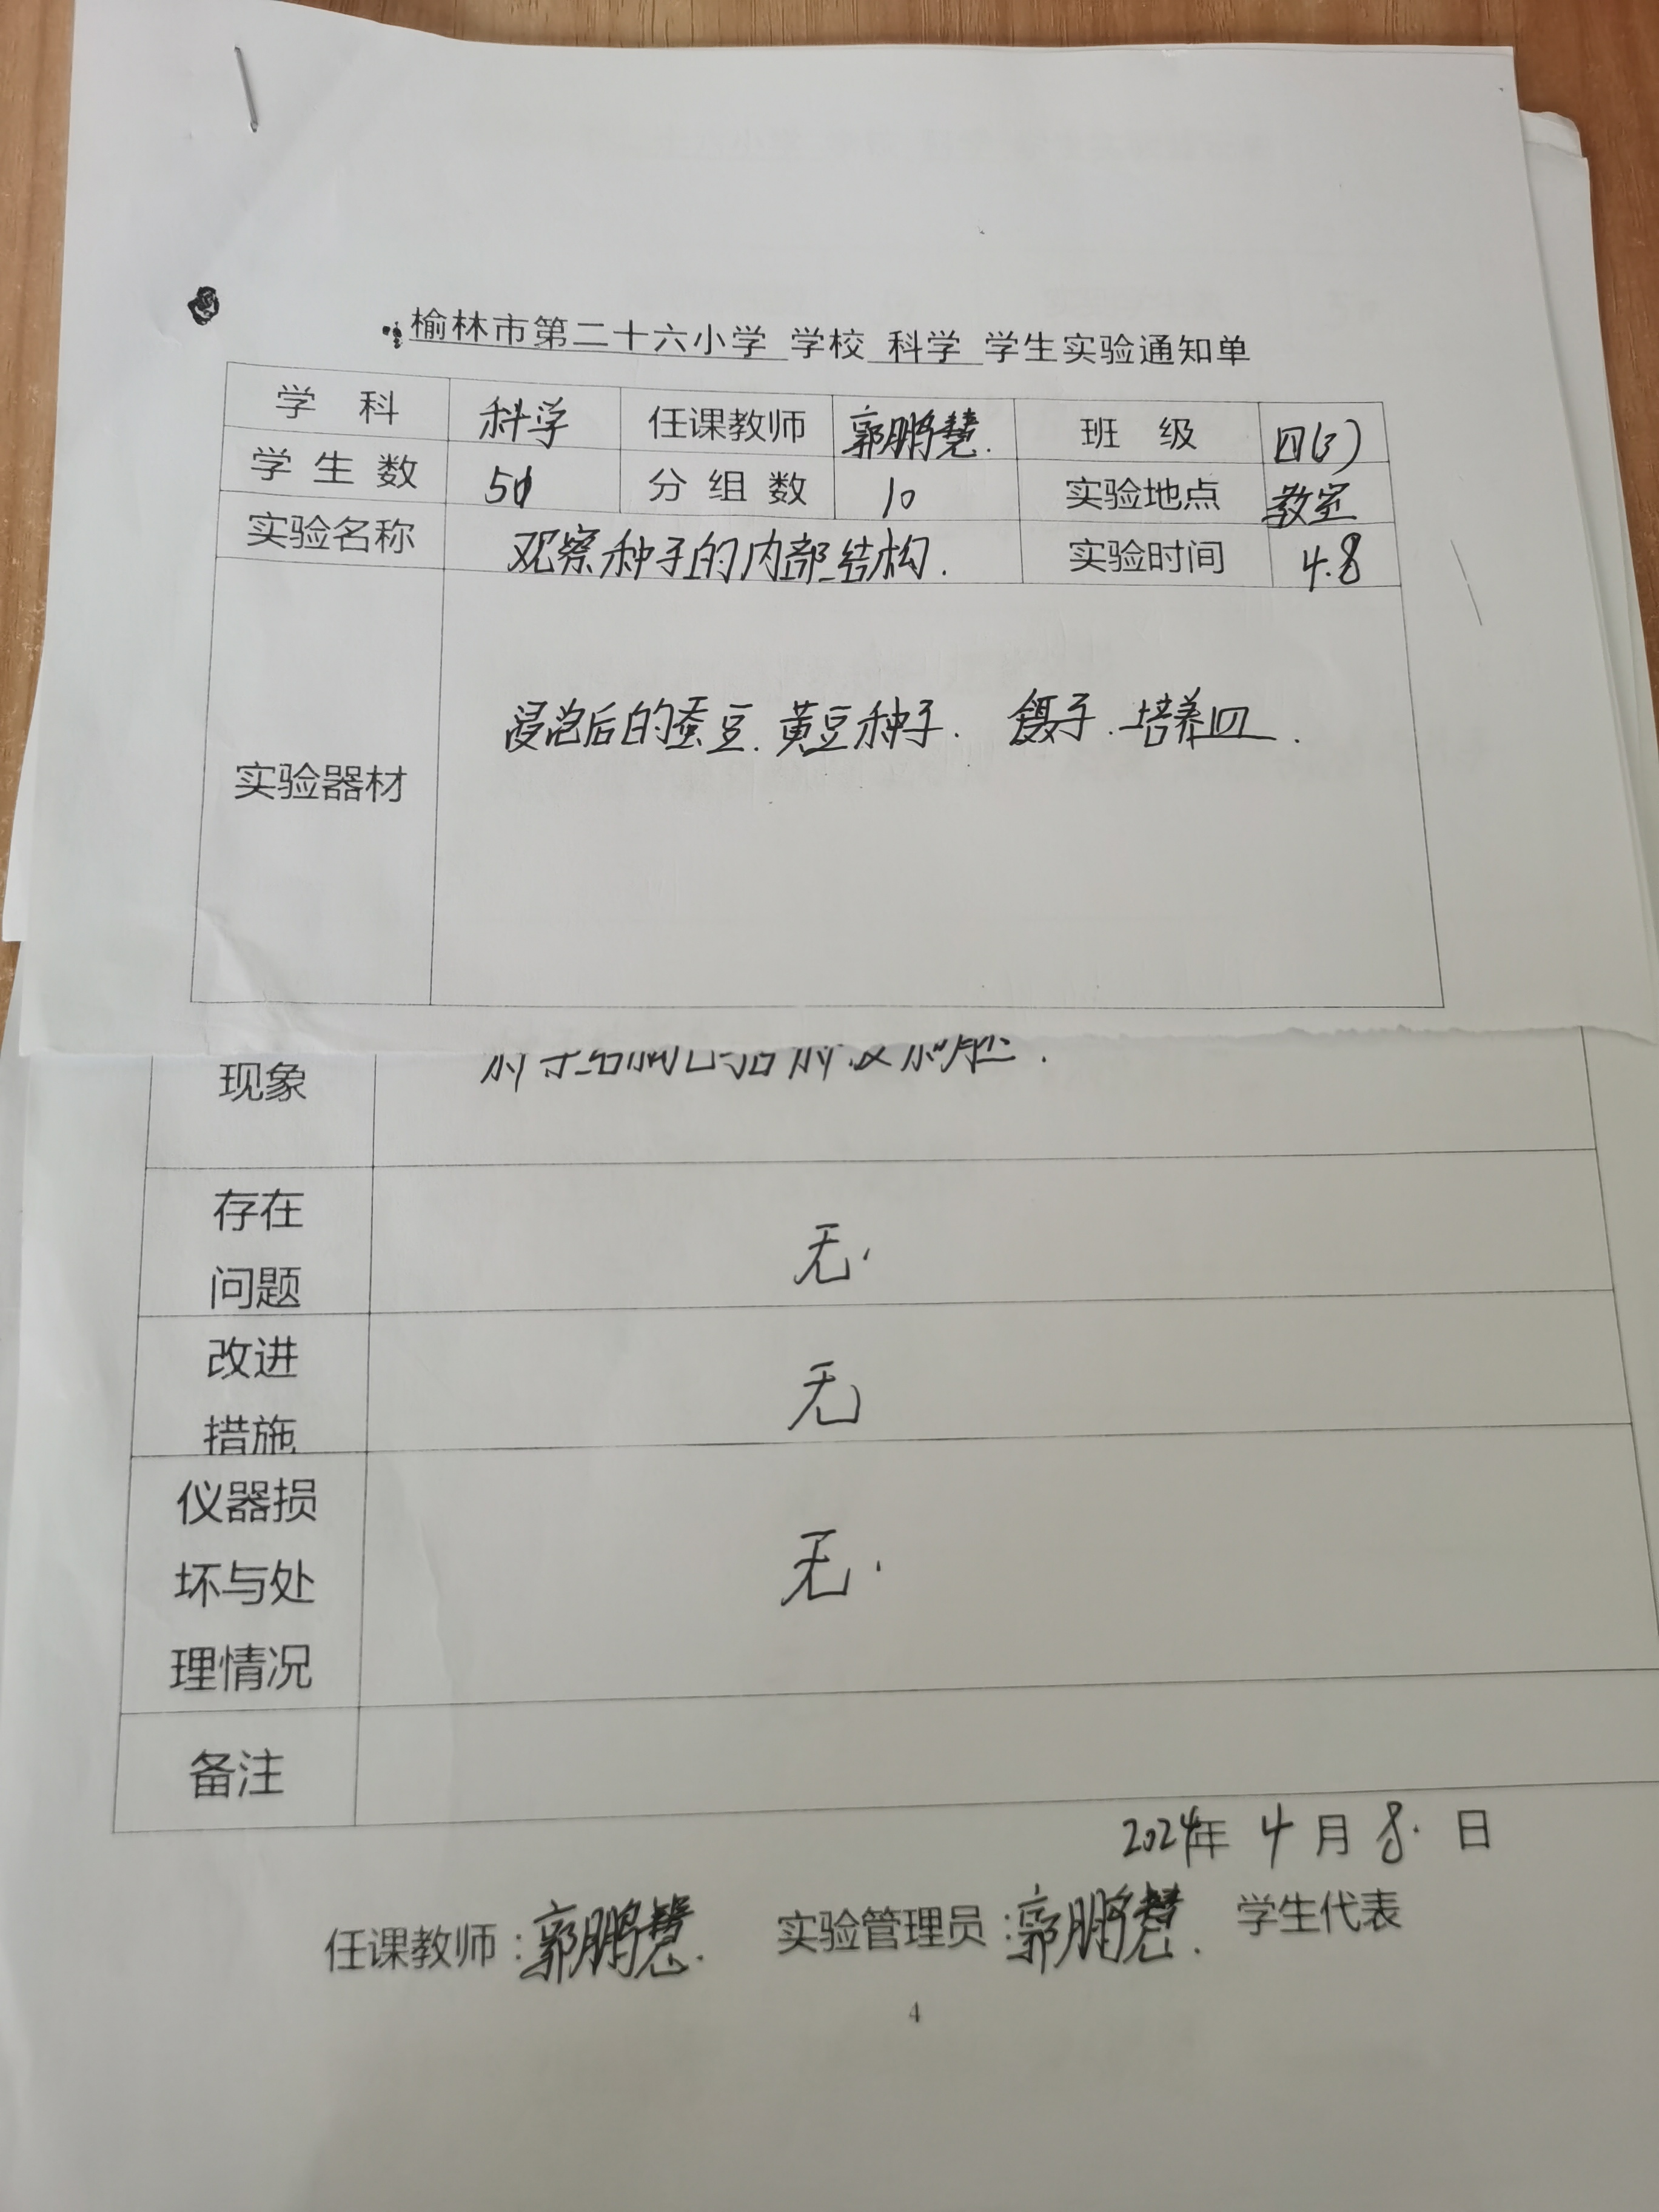 榆林市第二十六小学 学校 科学 学生实验通知单
学 科 科学 任课教师 郭鹏慧. 班 级 四(3)
学 生 数 分 组 数 10 实验地点 教室
实验名称 观察种子的内部结构. 实验时间 4.8
实验器材 浸泡后的蚕豆.黄豆种子. 镊子.培养皿.
现象
存在
问题 无.
改进
措施 无
仪器损
坏与处
理情况 无.
备注
2024年 4 月 8. 日
任课教师:郭鹏慧. 实验管理员:郭鹏慧. 学生代表
4